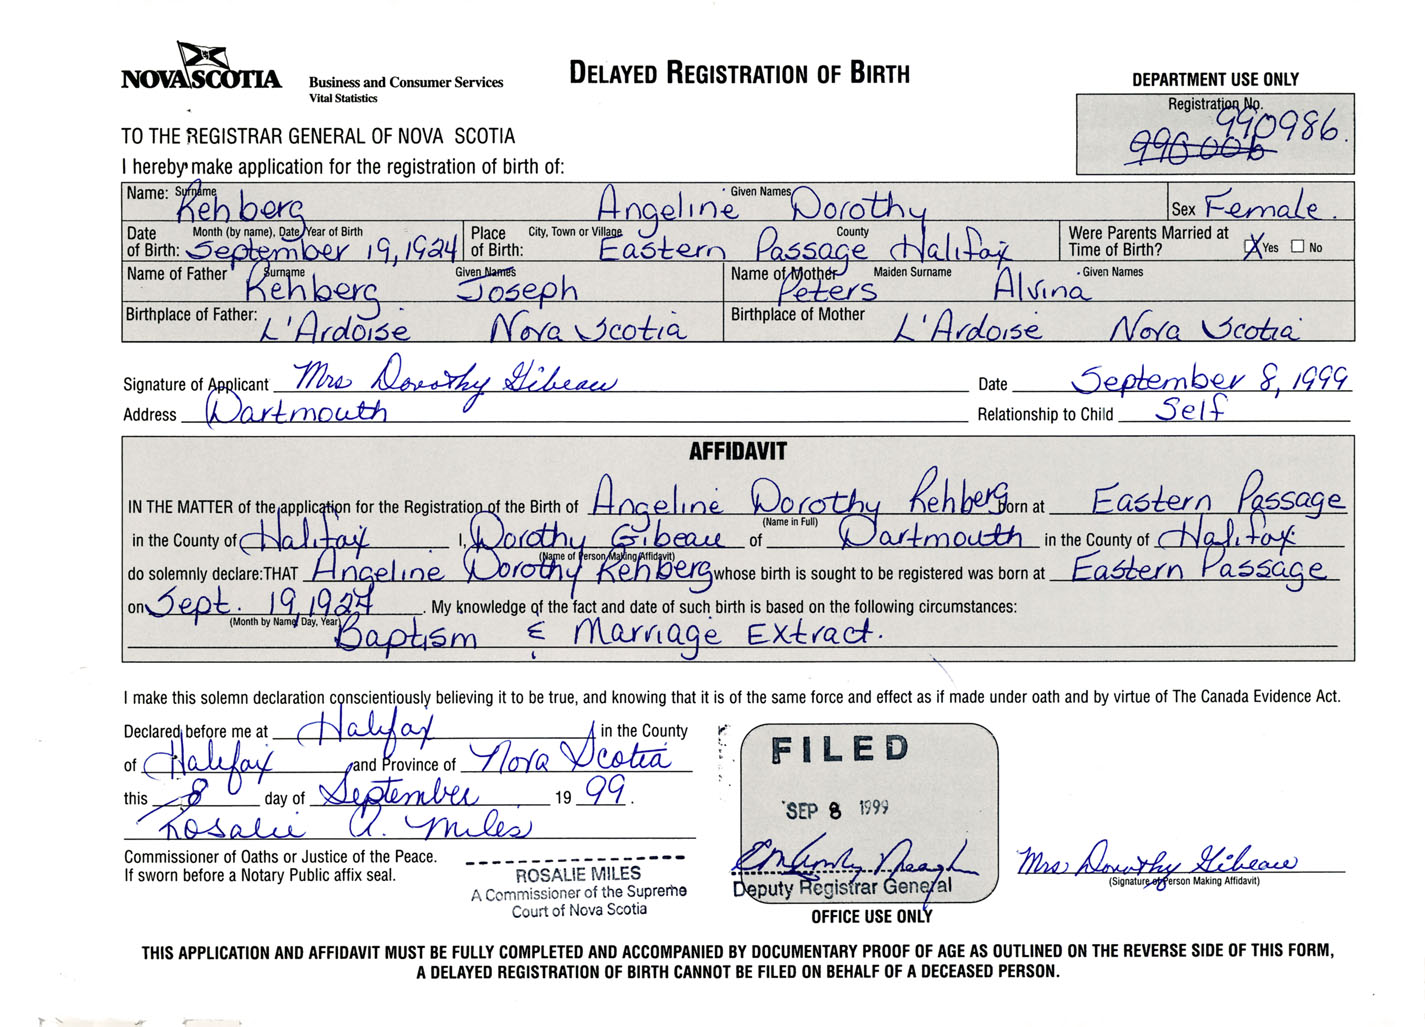 NOVA SCOTIA
Business and Consumer Services
Vital Statistics
DELAYED REGISTRATION OF BIRTH
DEPARTMENT USE ONLY
Registration No.
990986.
990006
TO THE REGISTRAR GENERAL OF NOVA SCOTIA
I hereby make application for the registration of birth of:
Name: Surname Rehberg Given Names Angeline Dorothy Sex Female.
Date of Birth: Month (by name), Date, Year of Birth September 19, 1924 Place of Birth: City, Town or Village County Eastern Passage Halifax Were Parents Married at Time of Birth? X Yes No
Name of Father Surname Given Names Rehberg Joseph Name of Mother Maiden Surname Given Names Peters Alvina
Birthplace of Father: L'Ardoise Nova Scotia Birthplace of Mother L'Ardoise Nova Scotia
Signature of Applicant Mrs Dorothy Gibeau Date September 8, 1999
Address Dartmouth Relationship to Child Self
AFFIDAVIT
IN THE MATTER of the application for the Registration of the Birth of Angeline Dorothy Rehberg born at Eastern Passage
(Name in Full)
in the County of Halifax I, Dorothy Gibeau of Dartmouth in the County of Halifax
(Name of Person Making Affidavit)
do solemnly declare: THAT Angeline Dorothy Rehberg whose birth is sought to be registered was born at Eastern Passage
on Sept. 19, 1924. My knowledge of the fact and date of such birth is based on the following circumstances:
(Month by Name, Day, Year)
Baptism & Marriage Extract.
I make this solemn declaration conscientiously believing it to be true, and knowing that it is of the same force and effect as if made under oath and by virtue of The Canada Evidence Act.
Declared before me at Halifax in the County
of Halifax and Province of Nova Scotia
this 8 day of September 19 99.
Rosalie A. Miles
Commissioner of Oaths or Justice of the Peace.
If sworn before a Notary Public affix seal.
ROSALIE MILES
A Commissioner of the Supreme
Court of Nova Scotia
FILED
SEP 8 1999
Deputy Registrar General
OFFICE USE ONLY
Mrs Dorothy Gibeau
(Signature of Person Making Affidavit)
THIS APPLICATION AND AFFIDAVIT MUST BE FULLY COMPLETED AND ACCOMPANIED BY DOCUMENTARY PROOF OF AGE AS OUTLINED ON THE REVERSE SIDE OF THIS FORM,
A DELAYED REGISTRATION OF BIRTH CANNOT BE FILED ON BEHALF OF A DECEASED PERSON.